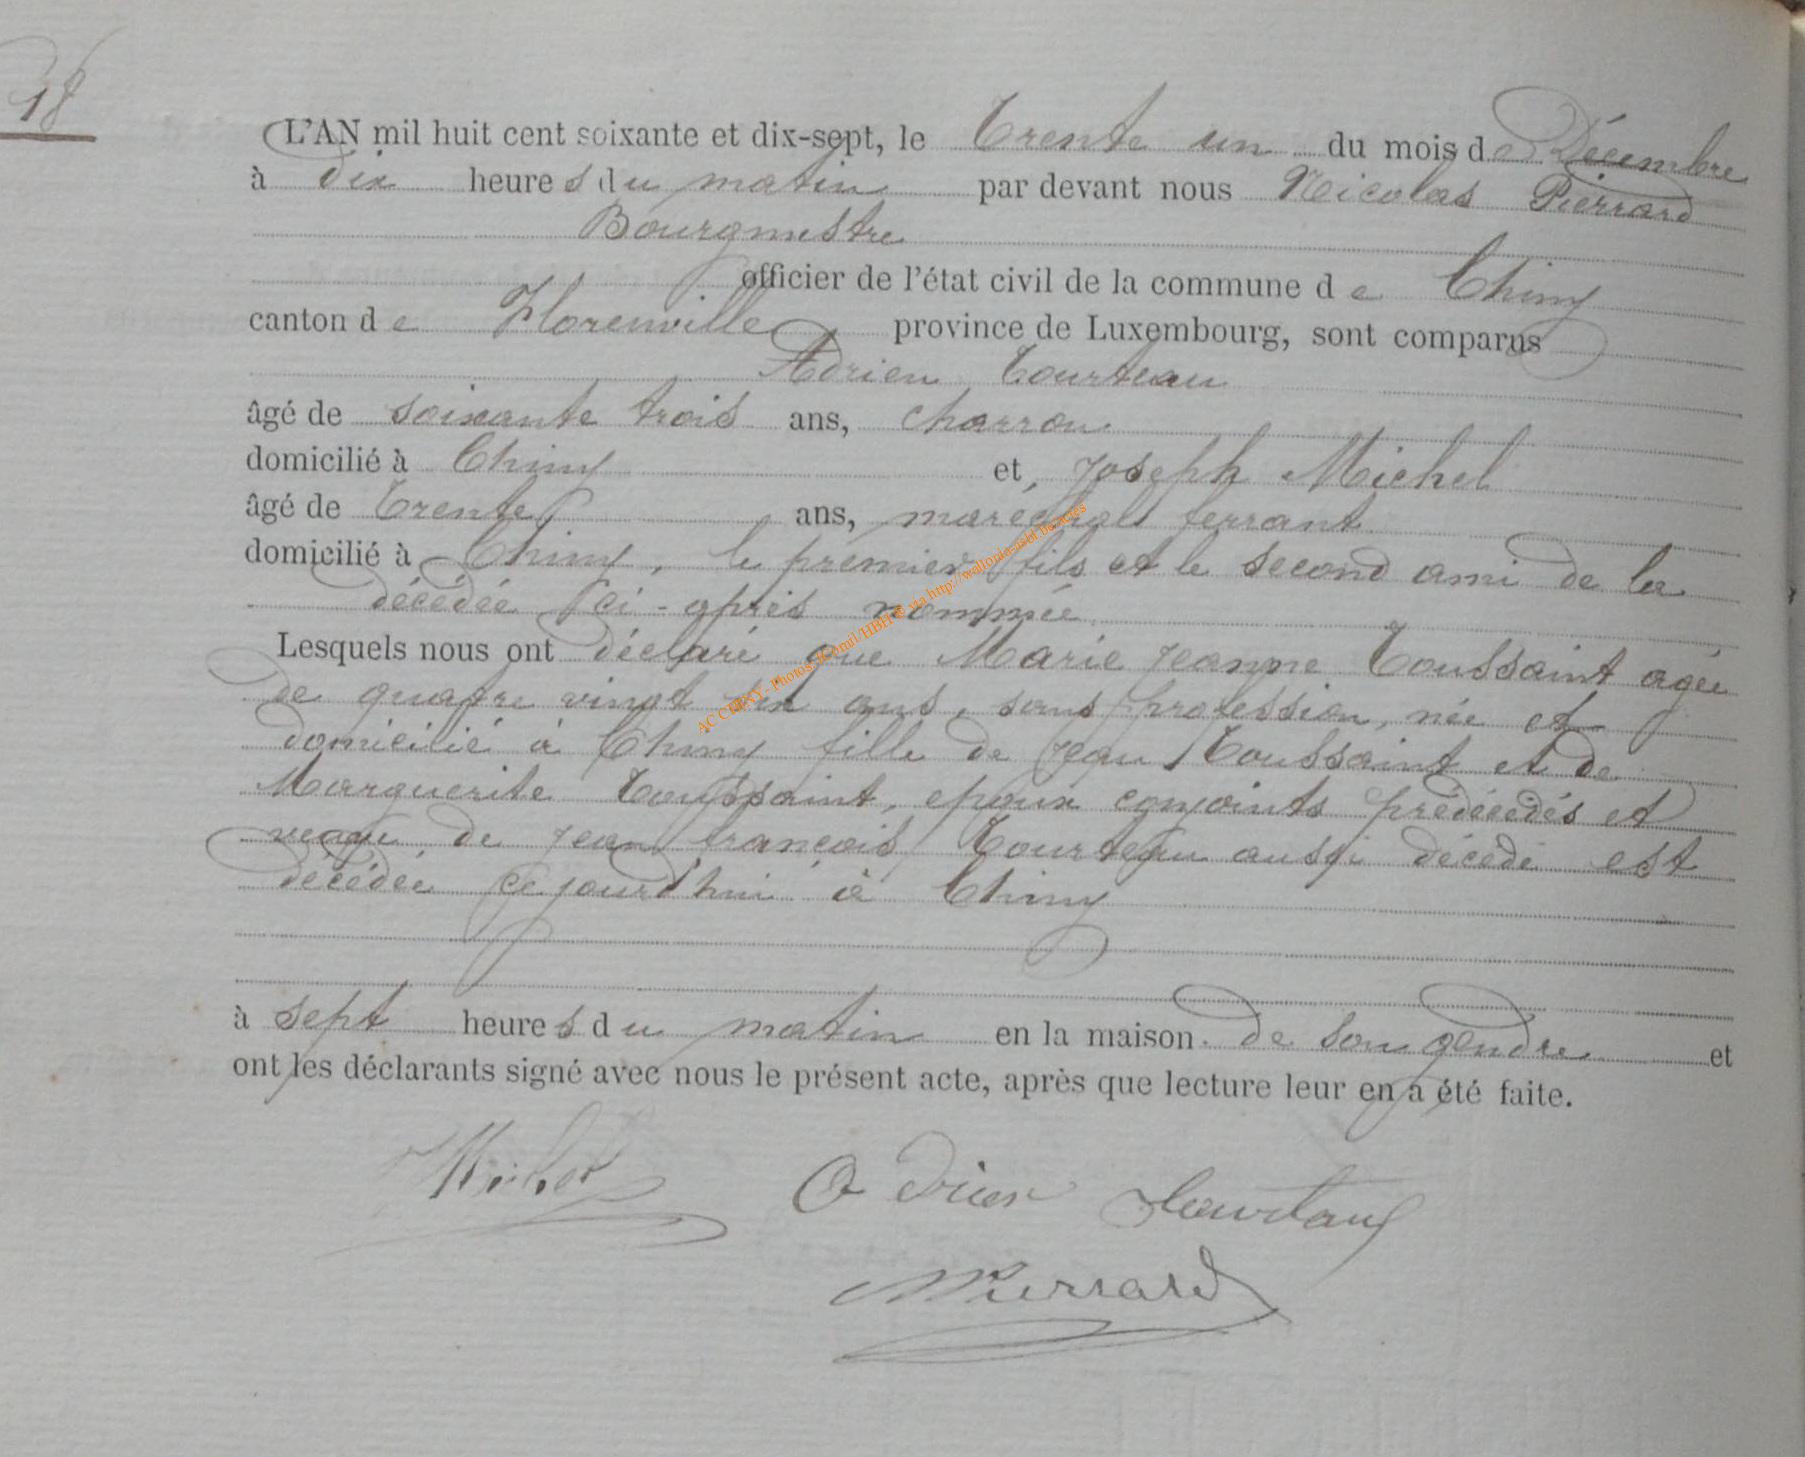 18
L'AN mil huit cent soixante et dix-sept, le Trente un du mois de Décembre
à dix heures du matin par devant nous Nicolas Pierrard
Bourgmestre
officier de l'état civil de la commune de Chiny
canton de Florenville province de Luxembourg, sont comparus
Adrien Tourteau
âgé de soixante trois ans, charron
domicilié à Chiny et, Joseph Michel
âgé de Trente ans, maréchal ferrant
domicilié à Chiny, le prémier fils et le second ami de la
décédée ci-après nommée
Lesquels nous ont déclaré que Marie Jeanne Toussaint agée
de quatre vingt ans, sans profession, née et
domicilié à Chiny fille de Jean Toussaint et de
Marguerite Toussaint, epoux conjoints prédécédés et
veuve de Jean françois Tourteau aussi décédé est
décédée ce jourd'hui à Chiny
à sept heures du matin en la maison de son gendre et
ont les déclarants signé avec nous le présent acte, après que lecture leur en a été faite.
Michel Adrien Tourtaux
NPierrard
AC CHINY - Photos: via http://wallonia-asbl.be/actes